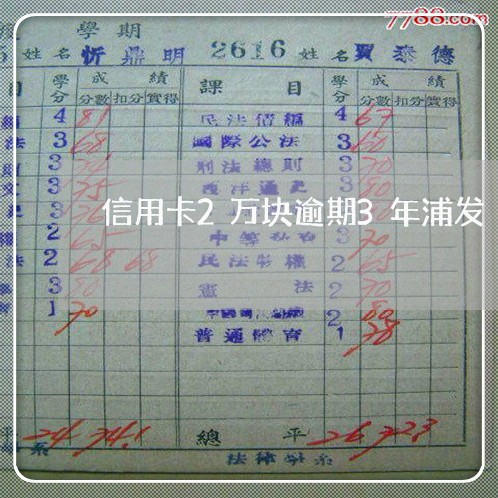 7788.com
度 學期
5 姓名 忻鼎明 2616 姓名 賈泰德
目 學分 成績 課目 學分 成績
分數 扣分 實得 分數 扣分 實得
4 81 民法債編 4 67
法 3 68 國際公法 3 60
3 刑法總則 3 70
文 3 75 西洋通史 3 80
3
信用卡2 万块逾期3 年浦发
2 65 3 70
法 2 68 68 民法物權 2 65
3 80 憲法 2 70
育 1 70 2 80
普通體育 1 78
平 24 74.1 總平 26 72.3
系 法律學系